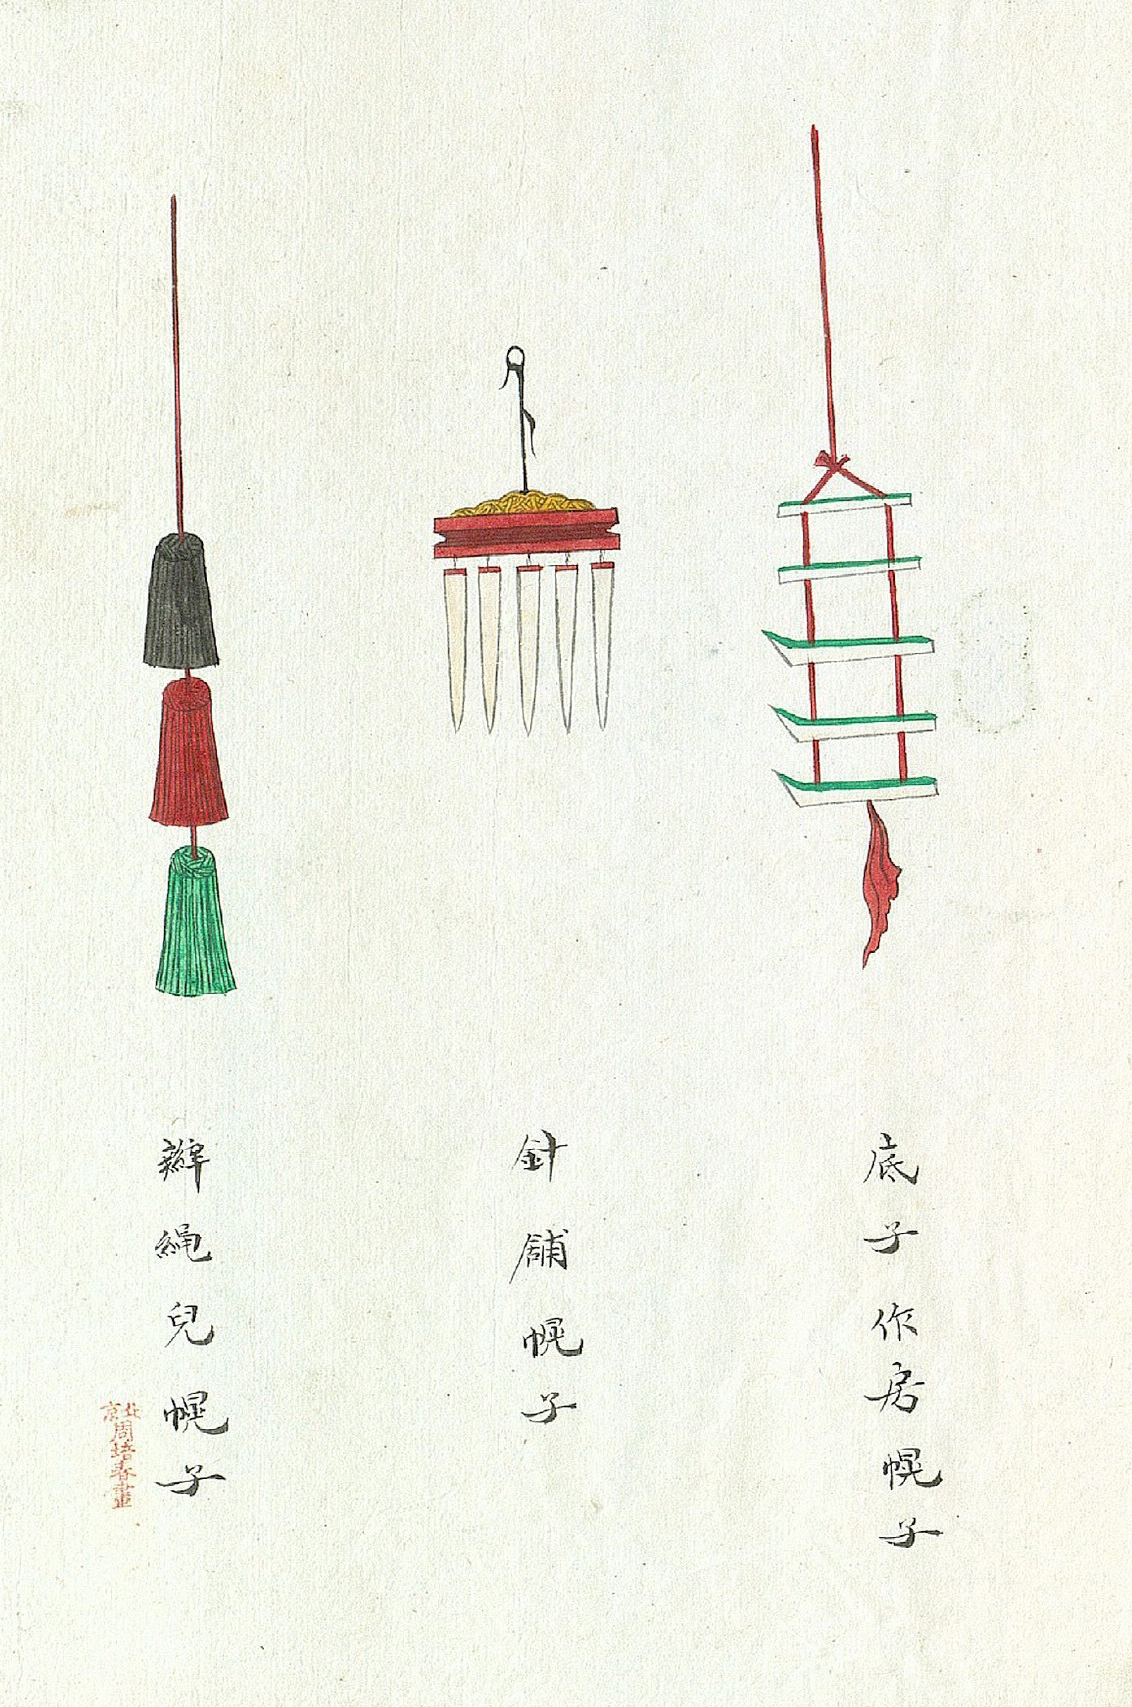 底子作房幌子
針鋪幌子
辮繩兒幌子
北京周培春畫